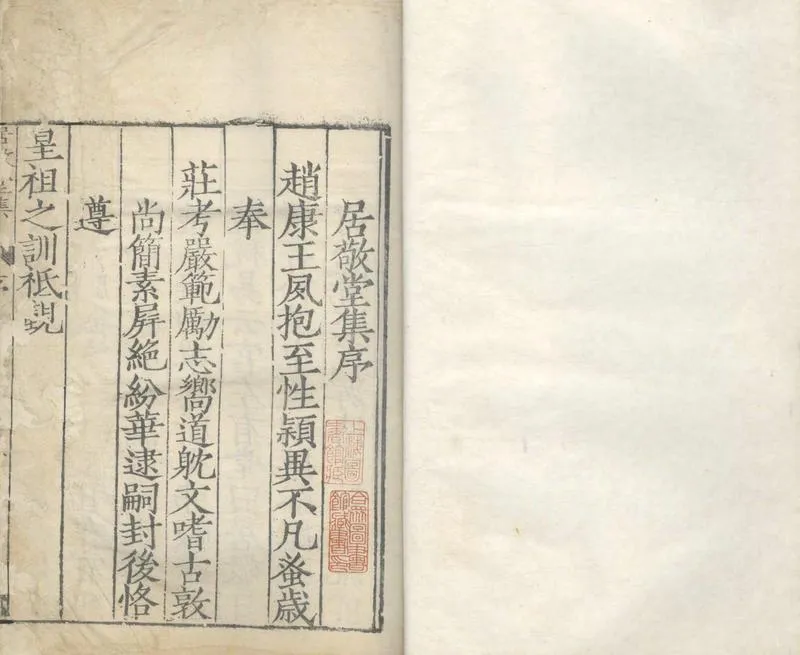 居敬堂集序
趙康王夙抱至性穎異不凡蚤歲
奉
莊考嚴範勵志嚮道躭文嗜古敦
尚簡素屏絶紛華逮嗣封後恪
遵
皇祖之訓祗覲